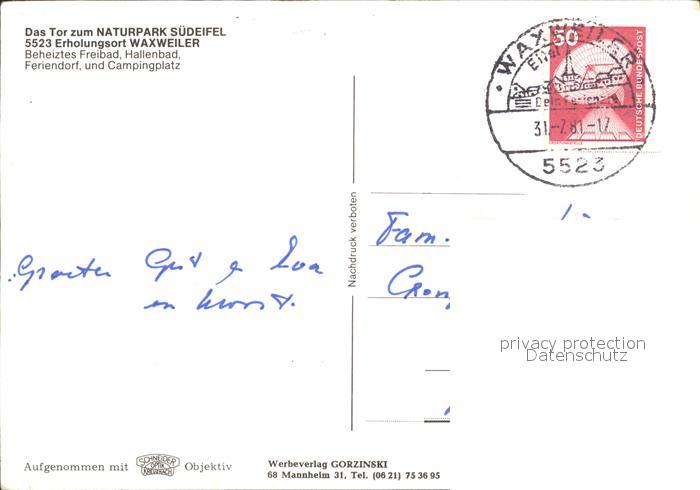 Das Tor zum NATURPARK SÜDEIFEL
5523 Erholungsort WAXWEILER
Beheiztes Freibad, Hallenbad,
Feriendorf, und Campingplatz
50
DEUTSCHE BUNDESPOST
WAXWEILER
Eifel
Dein Ferien
31.-7.81-17
5523
Nachdruck verboten
Fam.
Groeten
en
privacy protection
Datenschutz
Aufgenommen mit SCHNEIDER OPTIK KREUZNACH Objektiv
Werbeverlag GORZINSKI
68 Mannheim 31, Tel. (06 21) 75 36 95